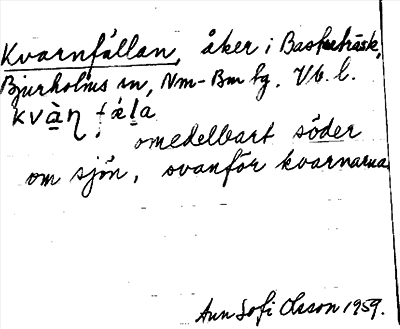 Kvarnfällan, åker i Basketräsk,
Bjurholms sn, Nm-Bm tg. Vb. l.
kvàɳ fǽḷa
omedelbart söder
om sjön, ovanför kvarnarna
Ann Sofi Olsson 1959.